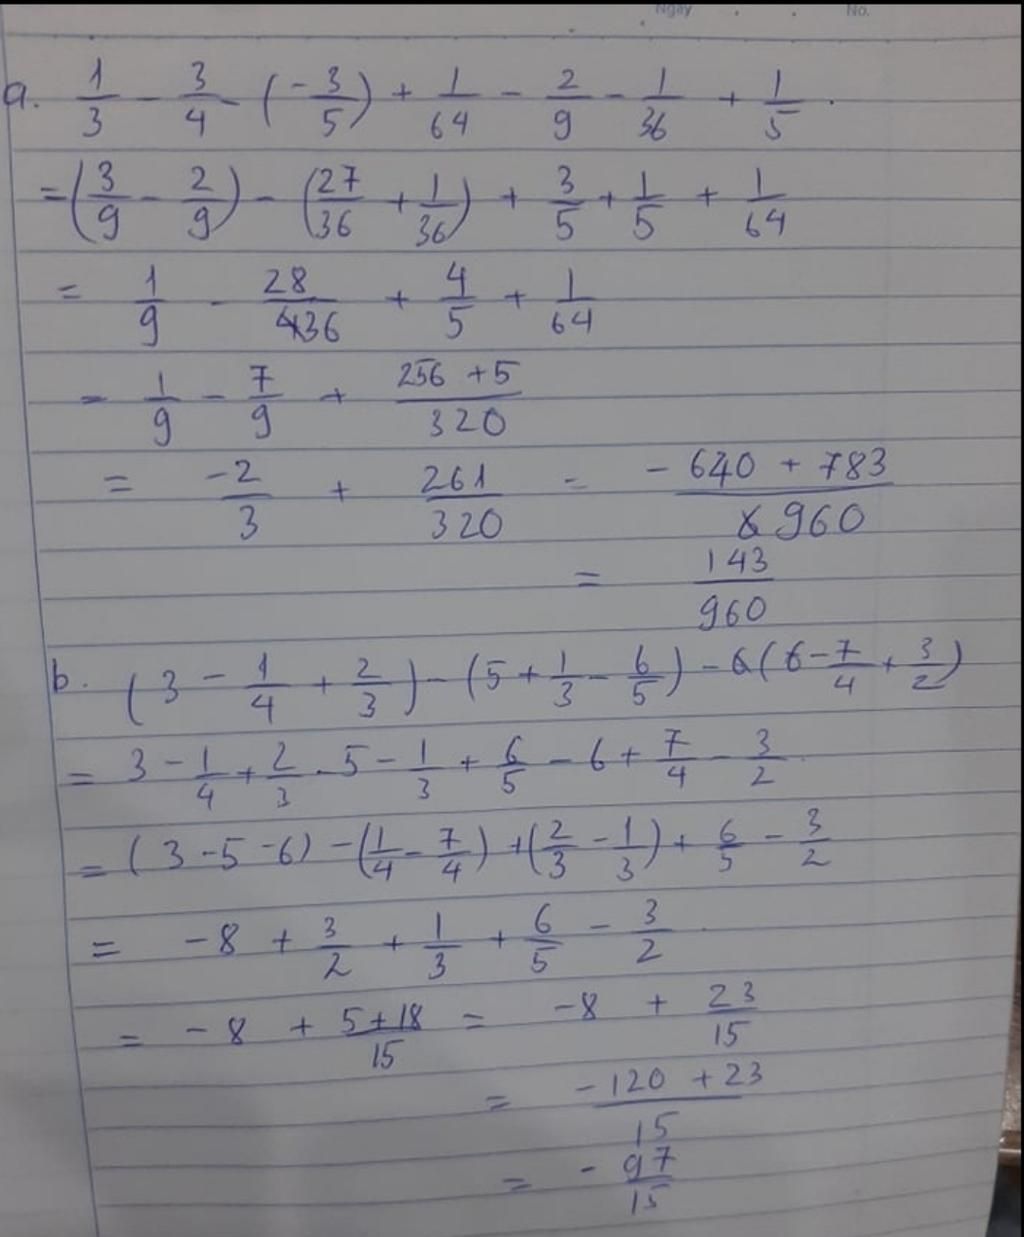 Ngày . . No.
a. 1/3 - 3/4 - (-3/5) + 1/64 - 2/9 - 1/36 + 1/5 .
= (3/9 - 2/9) - (27/36 + 1/36) + 3/5 + 1/5 + 1/64
= 1/9 - 28/36 + 4/5 + 1/64
= 1/9 - 7/9 + (256 + 5)/320
= -2/3 + 261/320 = (-640 + 783)/960
= 143/960
b. (3 - 1/4 + 2/3) - (5 + 1/3 - 6/5) - (6 - 7/4 + 3/2)
= 3 - 1/4 + 2/3 - 5 - 1/3 + 6/5 - 6 + 7/4 - 3/2
= (3 - 5 - 6) - (1/4 - 7/4) + (2/3 - 1/3) + 6/5 - 3/2
= -8 + 3/2 + 1/3 + 6/5 - 3/2
= -8 + (5 + 18)/15 = -8 + 23/15
= (-120 + 23)/15
= -97/15